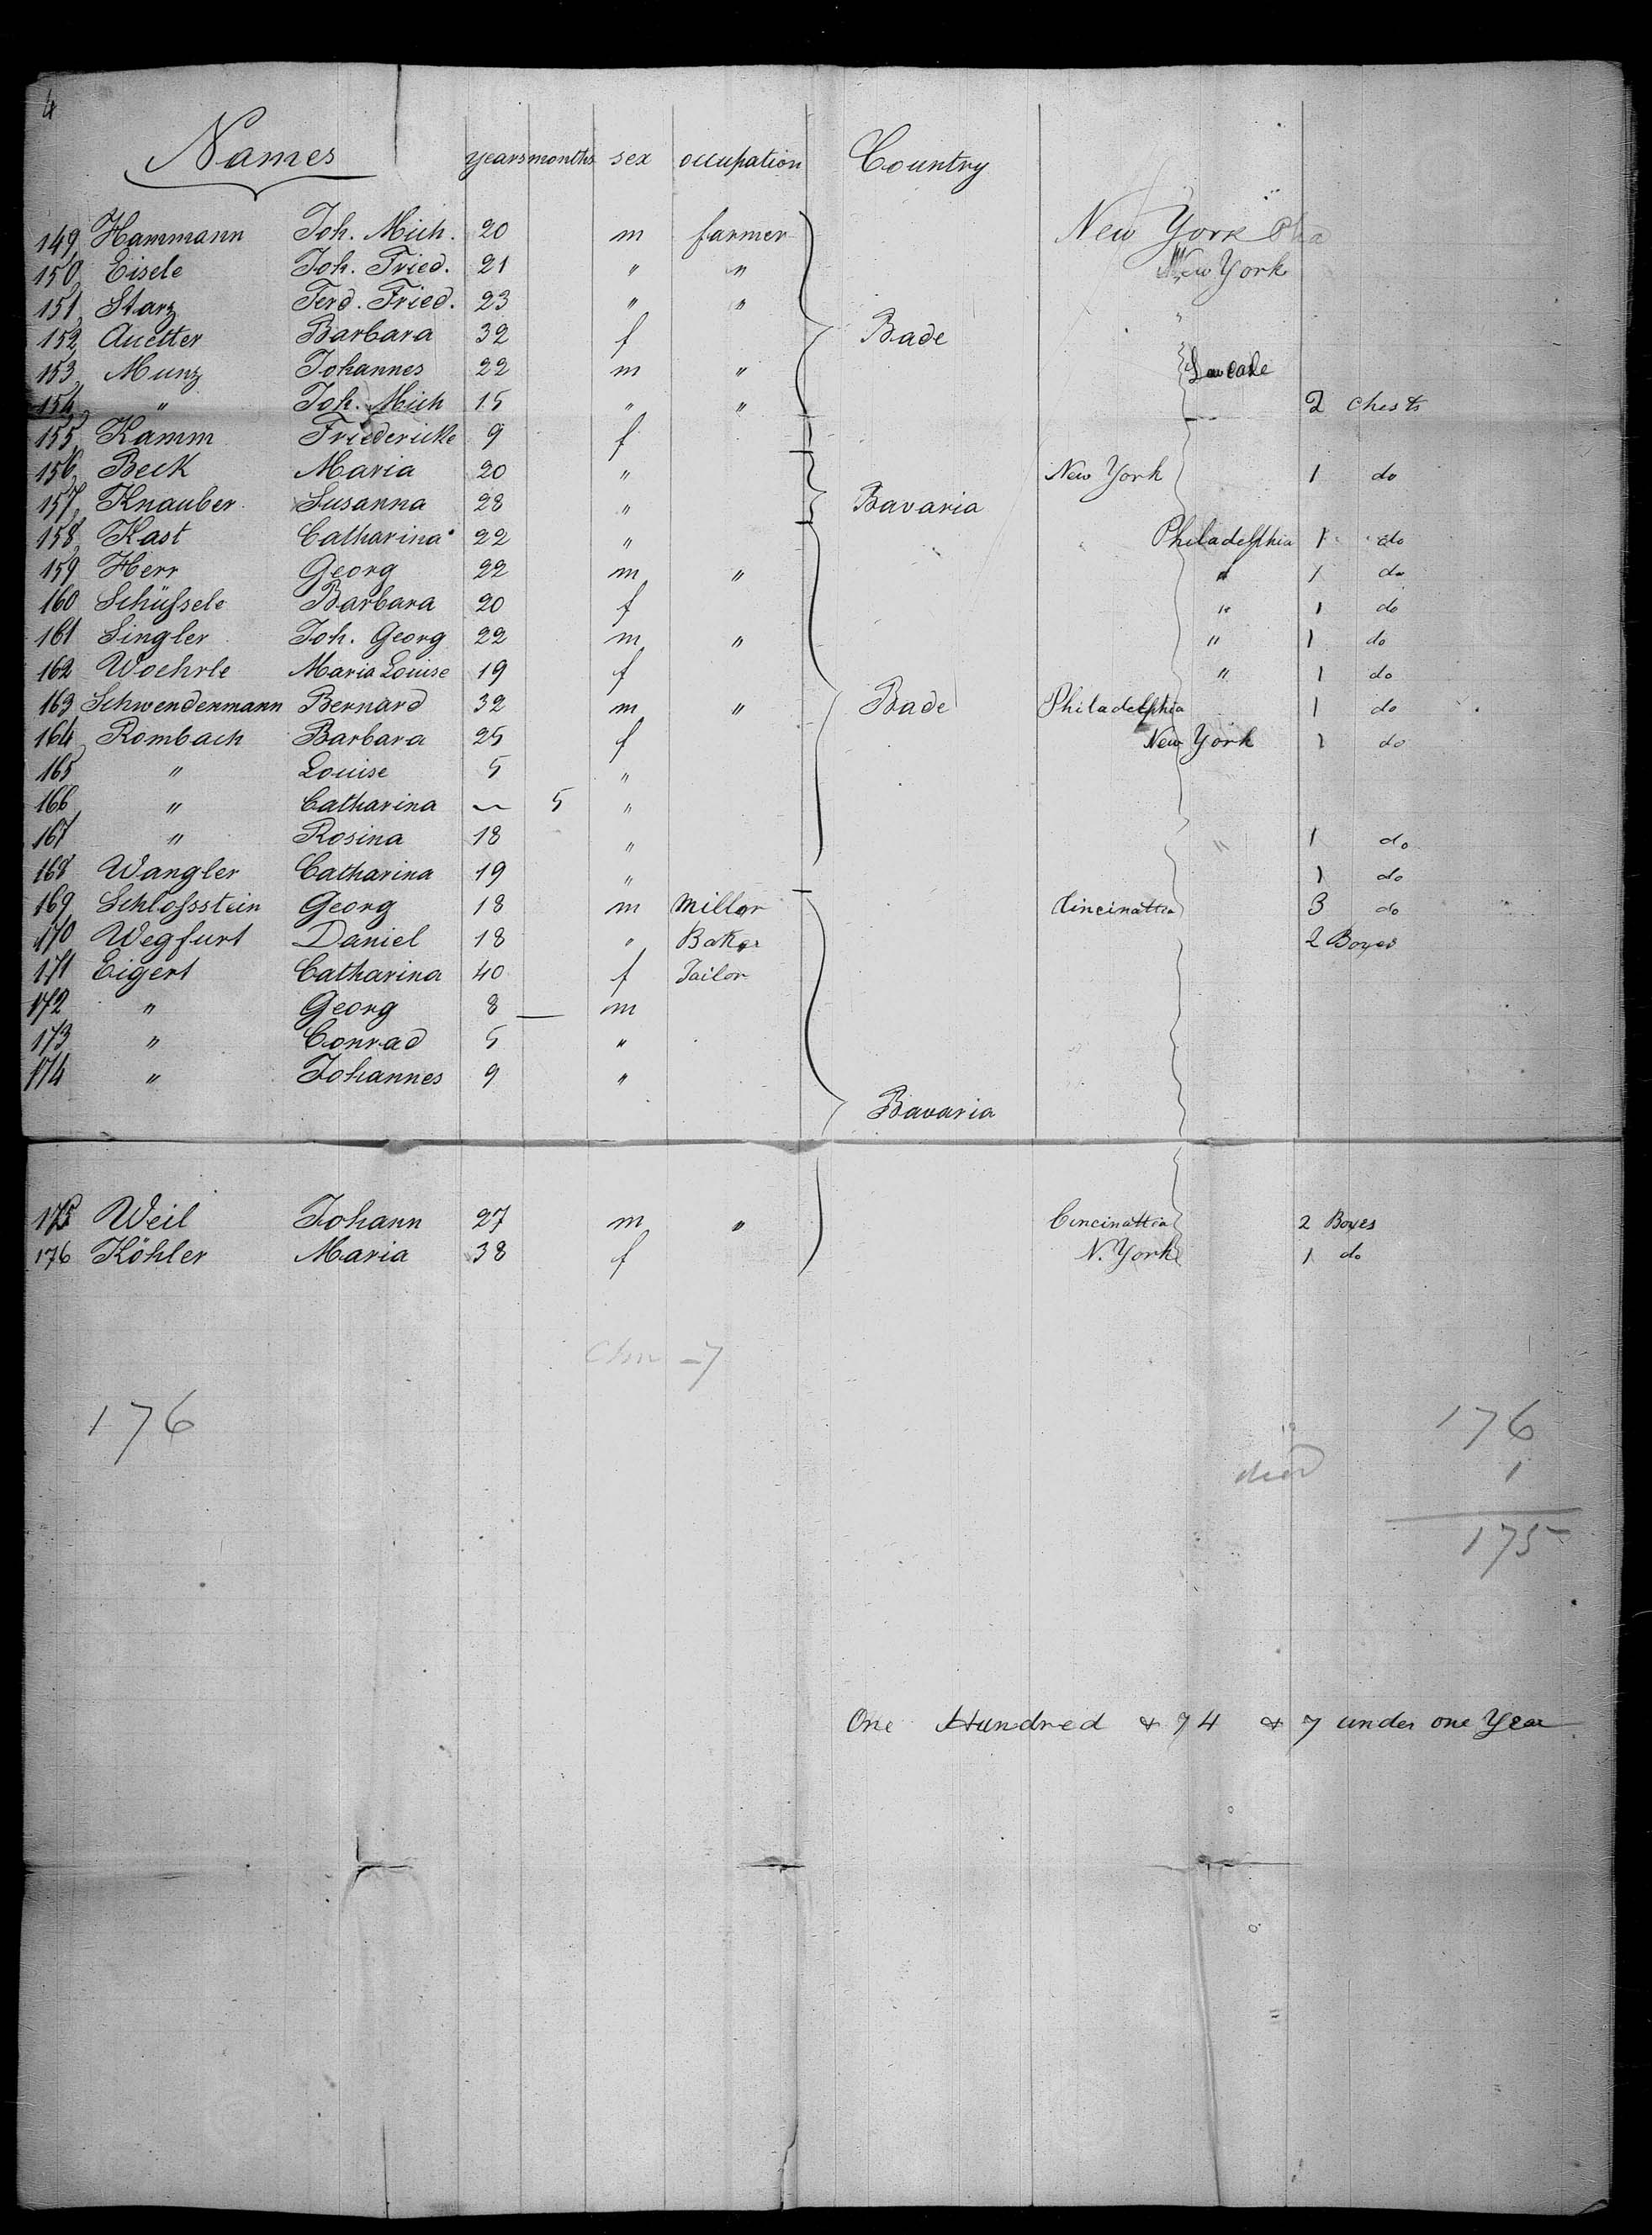 4
Names years months sex occupation Country
149, Hammann Joh. Mich. 20 m farmer New York
150, Eisele Joh. Fried. 21 " " New York
151, Starz Ferd. Fried. 23 " " "
152, Auetter Barbara 32 f Bade
153, Munz Johannes 22 m "
154, " Joh. Mich 15 " " 2 chests
155, Kamm Friedericke 9 f
156, Beck Maria 20 " New York 1 do
157, Knauber Susanna 28 " Bavaria
158, Kast Catharina 22 " Philadelphia 1 do
159 Herr Georg 22 m " " 1 do
160 Schüſsele Barbara 20 f " 1 do
161 Singler Joh. Georg 22 m " " 1 do
162 Woehrle Maria Louise 19 f " 1 do
163 Schwendenmann Bernard 32 m " Bade Philadelphia 1 do
164 Rombach Barbara 25 f New York 1 do
165 " Louise 5 "
166 " Catharina — 5 "
167 " Rosina 18 " " 1 do
168 Wangler Catharina 19 " 1 do
169 Schloſsstein Georg 18 m Miller Cincinattia 3 do
170 Wegfurt Daniel 18 " Baker 2 Boxes
171 Eigert Catharina 40 f Tailor
172 " Georg 8 — m
173 " Conrad 5 "
174 " Johannes 9 "
Bavaria
175 Weil Johann 27 m " Cincinattia 2 Boxes
176 Köhler Maria 38 f N. York 1 do
176 176
died 1
175
One Hundred & 74 & 7 under one Year